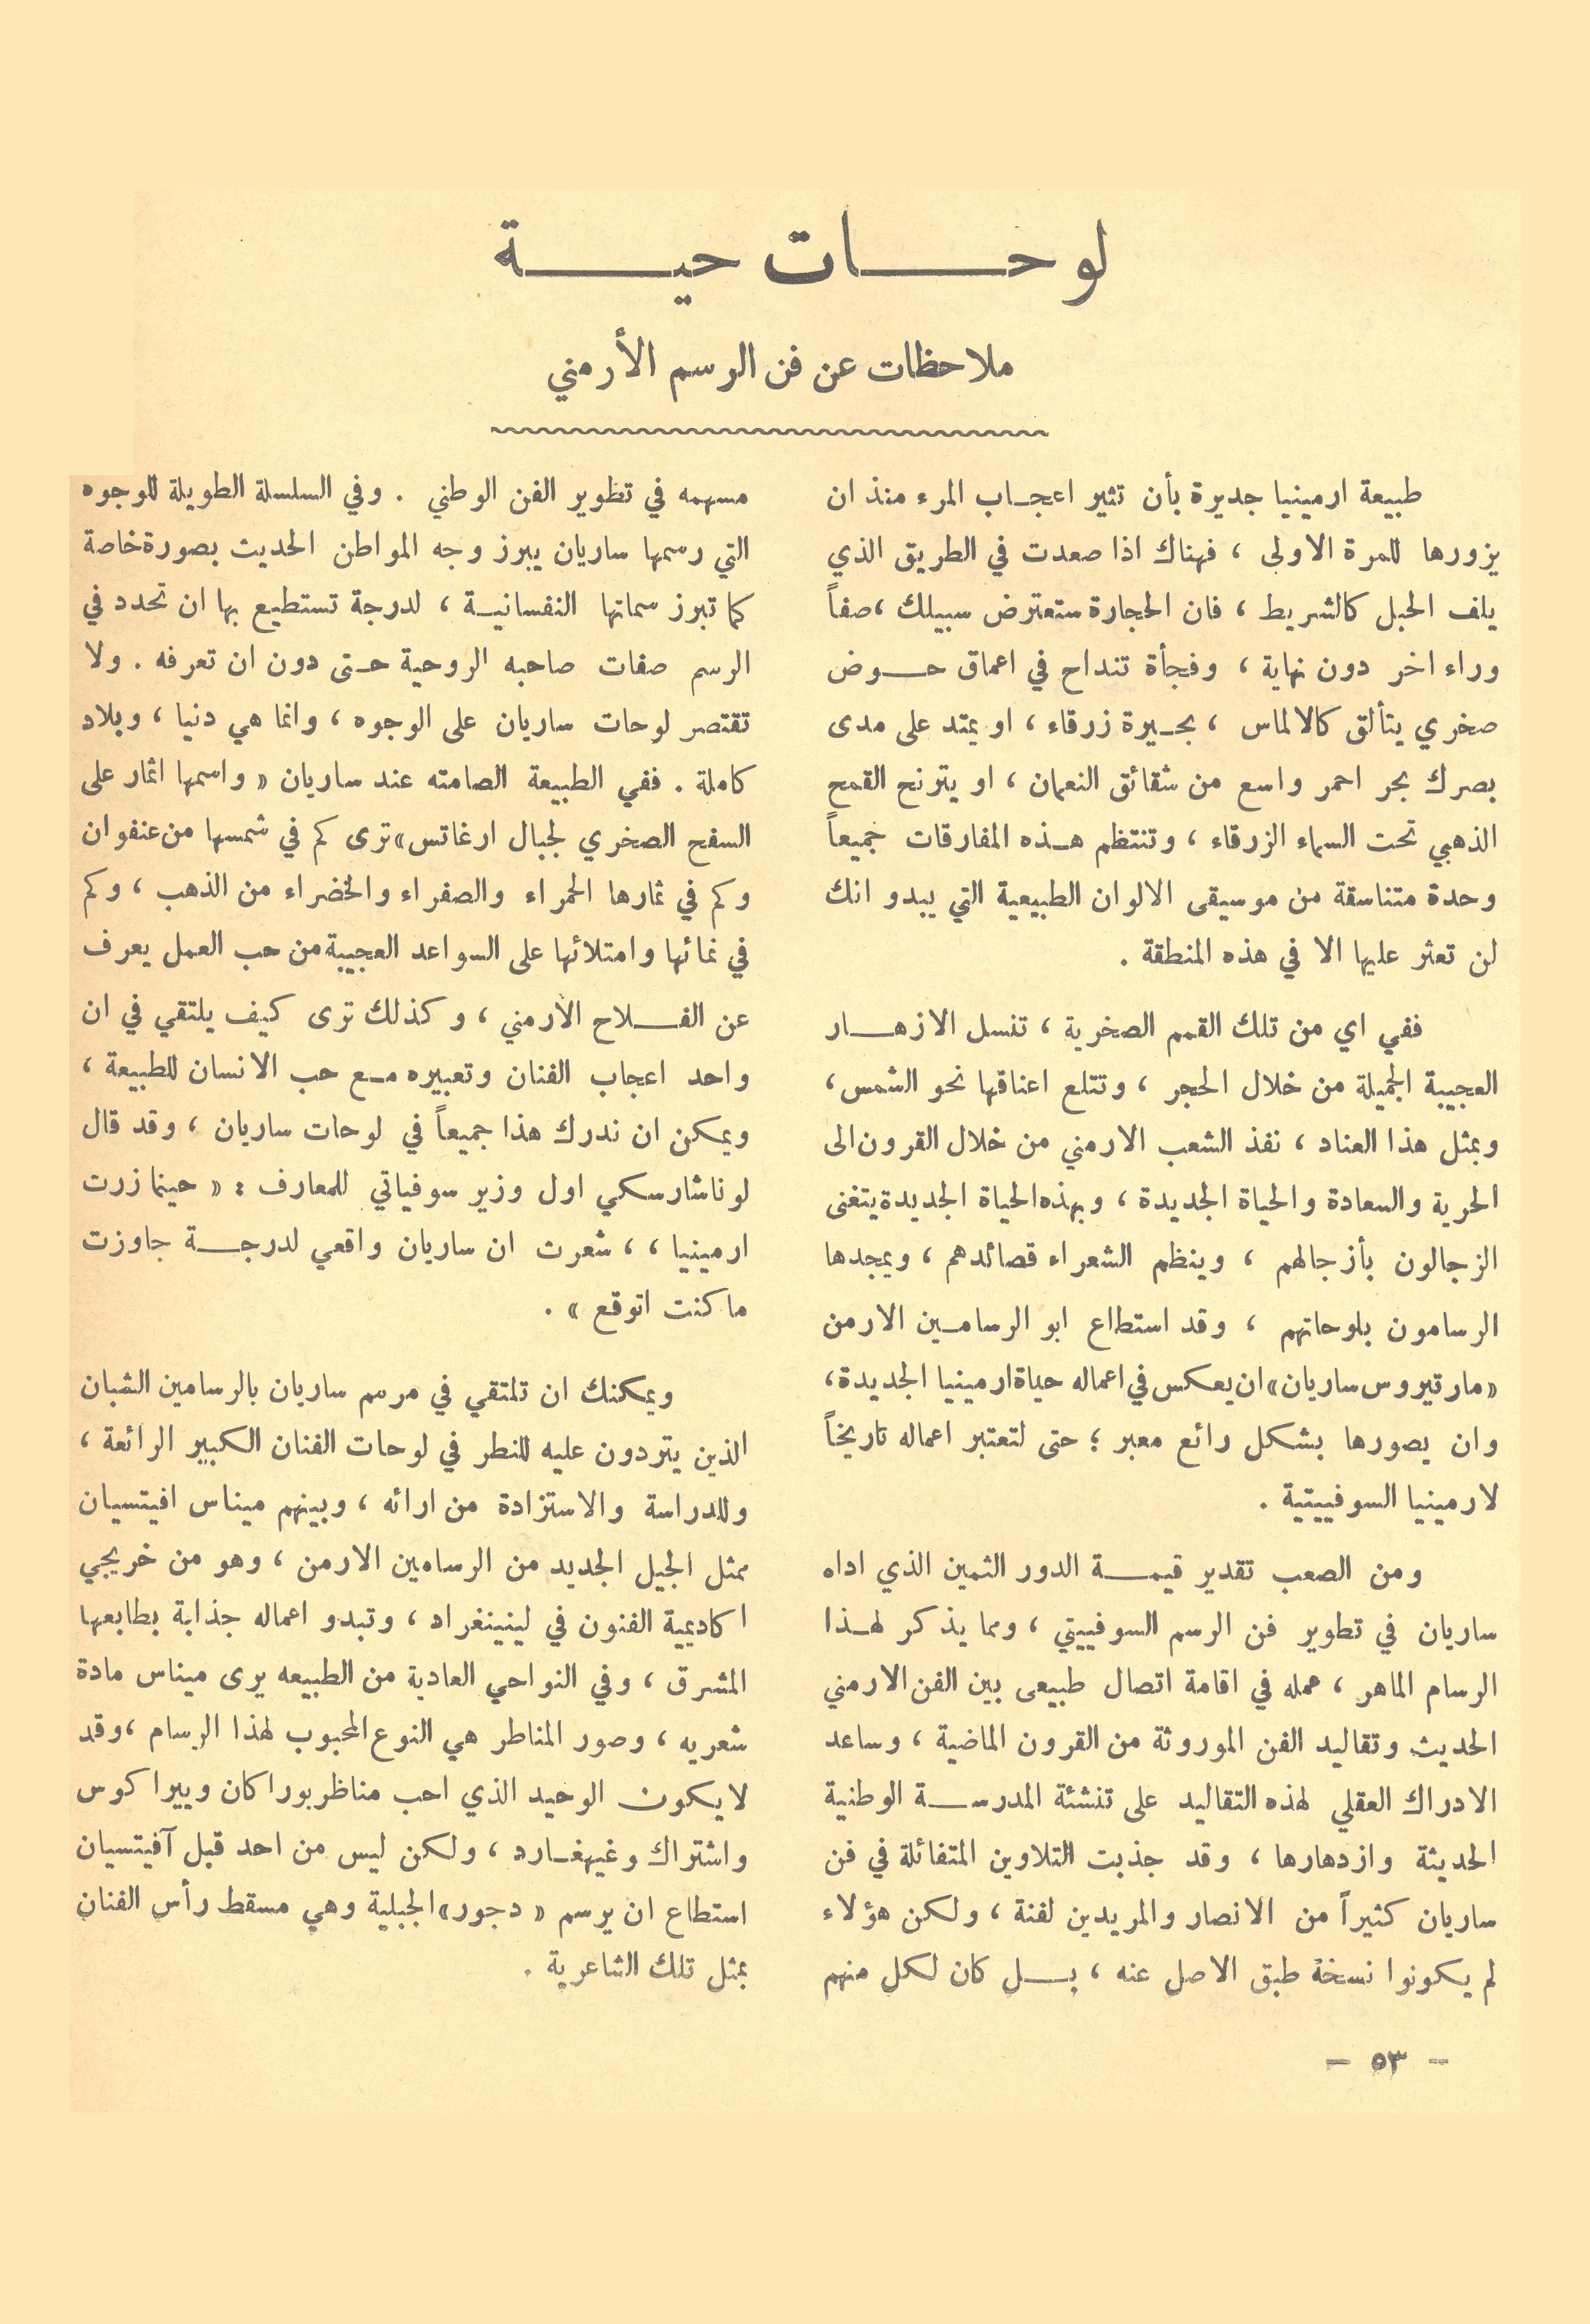 لوحات حية
ملاحظات عن فن الرسم الأرمني
طبيعة ارمينيا جديرة بأن تثير اعجاب المرء منذ ان
يزورها للمرة الاولى ، فهناك اذا صعدت في الطريق الذي
يلف الجبل كالشريط ، فان الحجارة ستعترض سبيلك ،صفاً
وراء اخر دون نهاية ، وفجأة تنداح في اعماق حوض
صخري يتألق كالالماس ، بحيرة زرقاء ، او يمتد على مدى
بصرك بحر احمر واسع من شقائق النعمان ، او يترنح القمح
الذهبي تحت السماء الزرقاء ، وتنتظم هذه المفارقات جميعاً
وحدة متناسقة من موسيقى الالوان الطبيعية التي يبدو انك
لن تعثر عليها الا في هذه المنطقة .
ففي اي من تلك القمم الصخرية ، تنسل الازهار
العجيبة الجميلة من خلال الحجر ، وتتلع اعناقها نحو الشمس،
وبمثل هذا العناد ، نفذ الشعب الارمني من خلال القرون الى
الحرية والسعادة والحياة الجديدة ، وبهذه الحياة الجديدة يتغنى
الزجالون بأزجالهم ، وينظم الشعراء قصائدهم ، ويمجدها
الرسامون بلوحاتهم ، وقد استطاع ابو الرسامين الارمن
«مارتيروس ساريان» ان يعكس في اعماله حياة ارمينيا الجديدة،
وان يصورها بشكل رائع معبر ؛ حتى لتعتبر اعماله تاريخاً
لارمينيا السوفييتية .
ومن الصعب تقدير قيمة الدور الثمين الذي اداه
ساريان في تطوير فن الرسم السوفييتي ، ومما يذكر لهذا
الرسام الماهر ، عمله في اقامة اتصال طبيعى بين الفن الارمني
الحديث وتقاليد الفن الموروثة من القرون الماضية ، وساعد
الادراك العقلي لهذه التقاليد على تنشئة المدرسة الوطنية
الحديثة وازدهارها ، وقد جذبت التلاوين المتفائلة في فن
ساريان كثيراً من الانصار والمريدين لفنة ، ولكن هؤلاء
لم يكونوا نسخة طبق الاصل عنه ، بل كان لكل منهم
مسهمه في تطوير الفن الوطني . وفي السلسلة الطويلة للوجوه
التي رسمها ساريان يبرز وجه المواطن الحديث بصورة خاصة
كما تبرز سماتها النفسانية ، لدرجة تستطيع بها ان تحدد في
الرسم صفات صاحبه الروحية حتى دون ان تعرفه . ولا
تقتصر لوحات ساريان على الوجوه ، وانما هي دنيا ، وبلاد
كاملة . ففي الطبيعة الصامته عند ساريان « واسمها اثمار على
السفح الصخري لجبال ارغاتس» ترى كم في شمسها من عنفوان
وكم في ثمارها الحمراء والصفراء والخضراء من الذهب ، وكم
في نمائها وامتلائها على السواعد العجيبة من حب العمل يعرف
عن الفلاح الأرمني ، وكذلك ترى كيف يلتقي في ان
واحد اعجاب الفنان وتعبيره مع حب الانسان للطبيعة ،
ويمكن ان ندرك هذا جميعاً في لوحات ساريان ، وقد قال
لوناشارسكي اول وزير سوفياتي للمعارف : « حينما زرت
ارمينيا ، ، شعرت ان ساريان واقعي لدرجة جاوزت
ما كنت اتوقع » .
ويمكنك ان تلتقي في مرسم ساريان بالرسامين الشبان
الذين يترددون عليه للنطر في لوحات الفنان الكبير الرائعة ،
وللدراسة والاستزادة من ارائه ، وبينهم ميناس افيتسيان
ممثل الجيل الجديد من الرسامين الارمن ، وهو من خريجي
اكاديمية الفنون في لينينغراد ، وتبدو اعماله جذابة بطابعها
المشرق ، وفي النواحي العادية من الطبيعه يرى ميناس مادة
شعريه ، وصور المناطر هي النوع المحبوب لهذا الرسام ،وقد
لا يكون الوحيد الذي احب مناظر بوراكان وبيراكوس
واشتراك وغيهغارد ، ولكن ليس من احد قبل آفيتسيان
استطاع ان يرسم « دجور» الجبلية وهي مسقط رأس الفنان
بمثل تلك الشاعرية .
– ٥٣ –